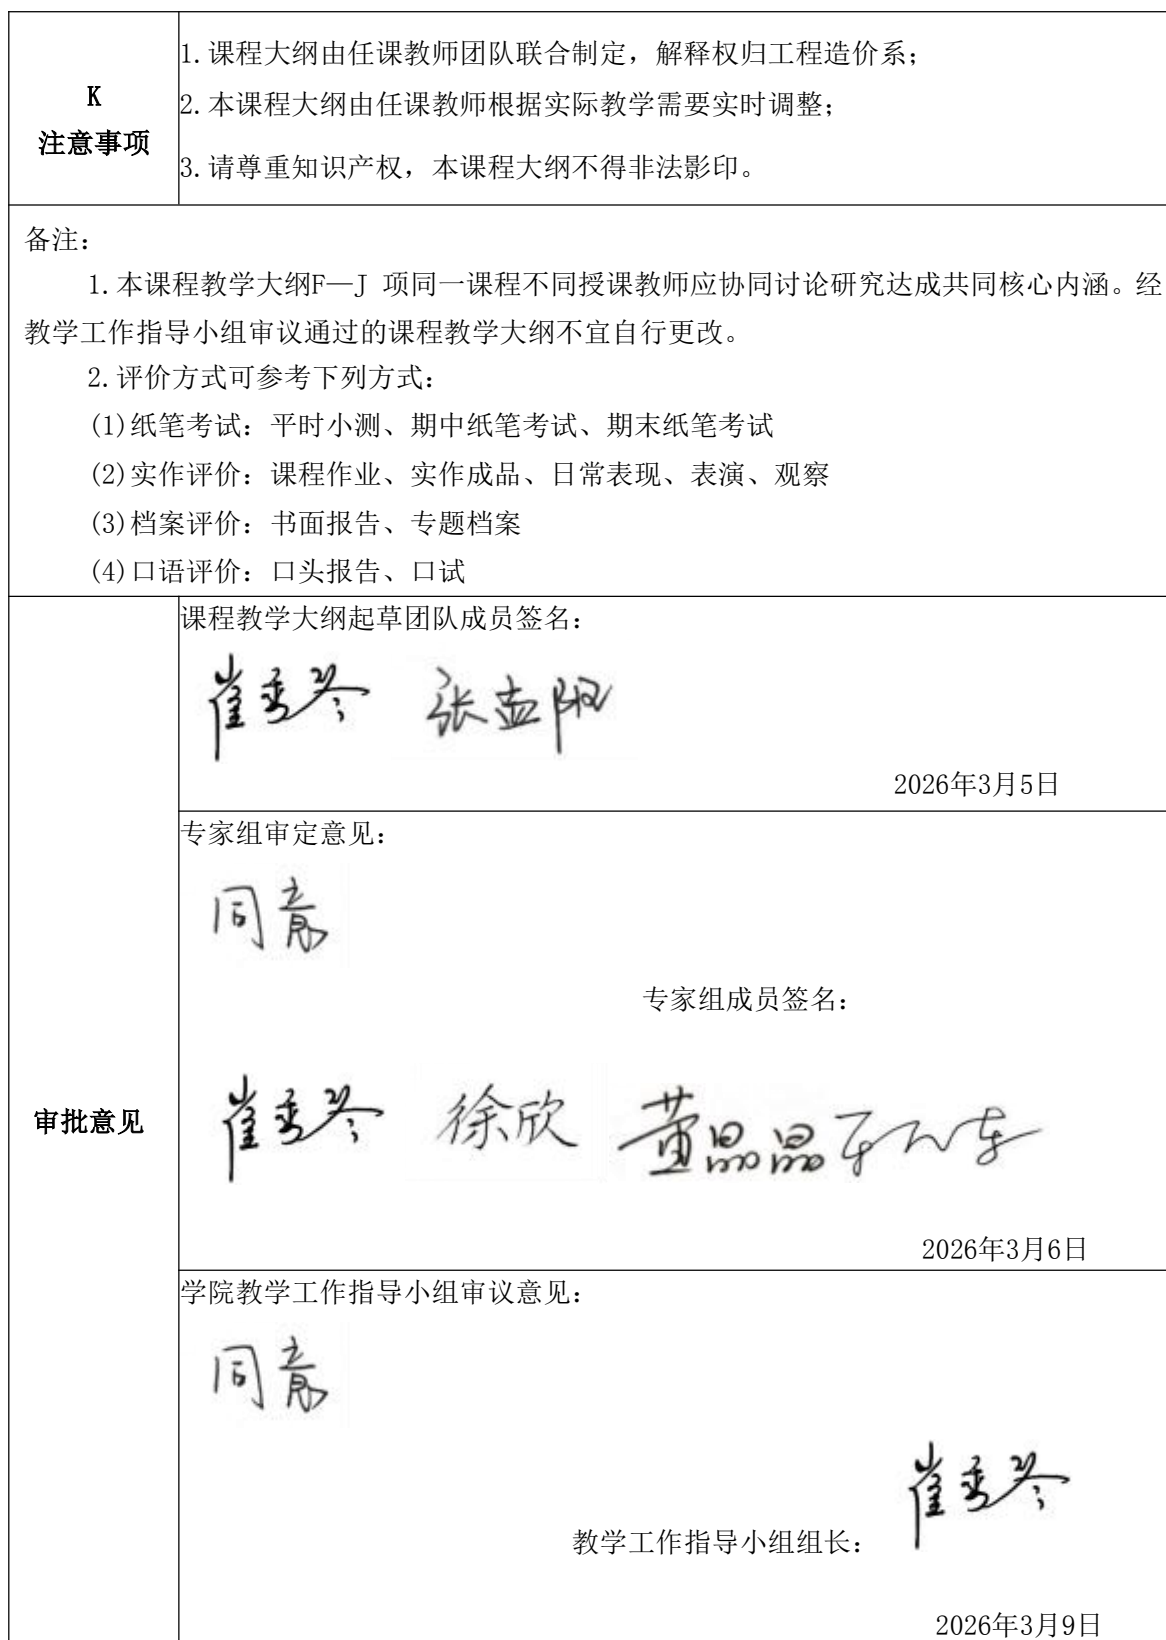 K
注意事项
1.课程大纲由任课教师团队联合制定，解释权归工程造价系；
2.本课程大纲由任课教师根据实际教学需要实时调整；
3.请尊重知识产权，本课程大纲不得非法影印。
备注：
1.本课程教学大纲F—J 项同一课程不同授课教师应协同讨论研究达成共同核心内涵。经
教学工作指导小组审议通过的课程教学大纲不宜自行更改。
2.评价方式可参考下列方式：
(1)纸笔考试：平时小测、期中纸笔考试、期末纸笔考试
(2)实作评价：课程作业、实作成品、日常表现、表演、观察
(3)档案评价：书面报告、专题档案
(4)口语评价：口头报告、口试
审批意见
课程教学大纲起草团队成员签名：
崔秀琴 张孟阳
2026年3月5日
专家组审定意见：
同意
专家组成员签名：
崔秀琴 徐欣 黄晶晶
2026年3月6日
学院教学工作指导小组审议意见：
同意
教学工作指导小组组长： 崔秀琴
2026年3月9日